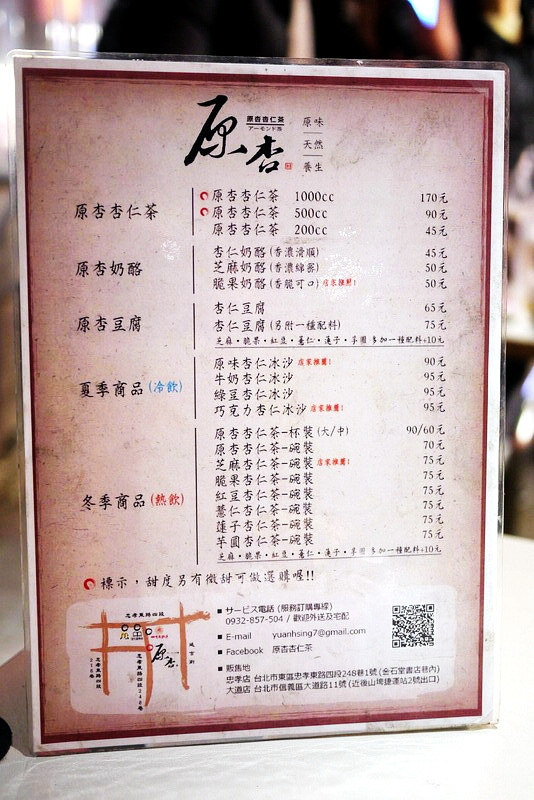 原杏
原杏杏仁茶
アーモンド茶
原味
天然
養生
原杏杏仁茶
原杏杏仁茶 1000cc 170元
原杏杏仁茶 500cc 90元
原杏杏仁茶 200cc 45元
原杏奶酪
杏仁奶酪(香濃滑順) 45元
芝麻奶酪(香濃綿密) 50元
脆果奶酪(香脆可口) 店家推薦! 50元
原杏豆腐
杏仁豆腐 65元
杏仁豆腐(另附一種配料) 75元
芝麻・脆果・紅豆・薏仁・蓮子・芋圓 多加一種配料+10元
夏季商品(冷飲)
原味杏仁冰沙 店家推薦! 90元
牛奶杏仁冰沙 95元
綠豆杏仁冰沙 95元
巧克力杏仁冰沙 店家推薦! 95元
冬季商品(熱飲)
原杏杏仁茶-杯裝(大/中) 90/60元
原杏杏仁茶-碗裝 70元
芝麻杏仁茶-碗裝 店家推薦! 75元
脆果杏仁茶-碗裝 75元
紅豆杏仁茶-碗裝 75元
薏仁杏仁茶-碗裝 75元
蓮子杏仁茶-碗裝 75元
芋圓杏仁茶-碗裝 75元
芝麻・脆果・紅豆・薏仁・蓮子・芋圓 多加一種配料+10元
標示，甜度另有微甜可做選購喔!!
忠孝東路四段
原杏
忠孝東路四段248巷
忠孝東路四段216巷
■ サービス電話 (服務訂購專線)
0932-857-504 / 歡迎外送及宅配
■ E-mail yuanhsing7@gmail.com
■ Facebook 原杏杏仁茶
■ 販售地
忠孝店 台北市東區忠孝東路四段248巷1號(金石堂書店巷內)
大道店 台北市信義區大道路11號(近後山埤捷運站2號出口)